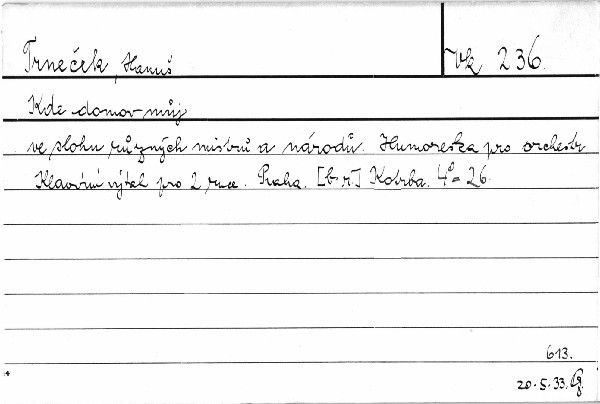 Trneček, Hanuš
Vk 236.
Kde domov můj
ve slohu různých mistrů a národů. Humoreska pro orchestr
Klavírní výtah pro 2 ruce. Praha. [b.r.] Kotrba. 4° - 26.
613.
20.5.33.